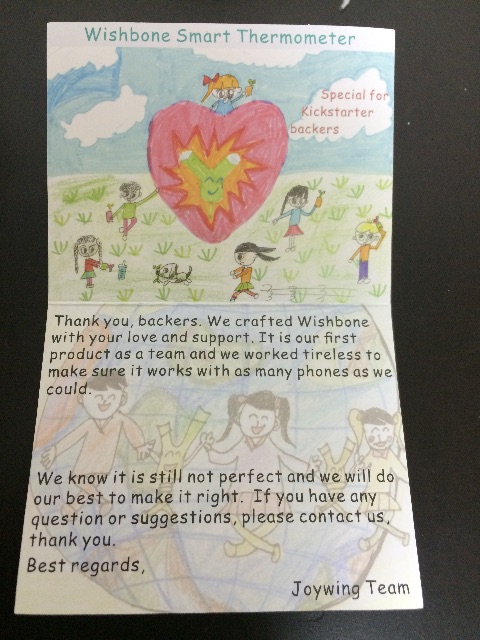 Wishbone Smart Thermometer
Special for
Kickstarter
backers
Thank you, backers. We crafted Wishbone
with your love and support. It is our first
product as a team and we worked tireless to
make sure it works with as many phones as we
could.
We know it is still not perfect and we will do
our best to make it right. If you have any
question or suggestions, please contact us,
thank you.
Best regards,
Joywing Team